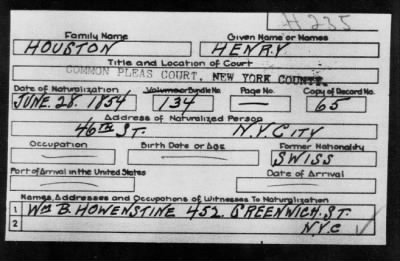 #235
Family Name Given Name or Names
HOUSTON HENRY
Title and Location of Court
COMMON PLEAS COURT, NEW YORK COUNTY.
Date of Naturalization Volume or Bundle No. Page No. Copy of Record No.
JUNE. 28. 1854 134 — 65
Address of Naturalized Person
46TH ST. N.Y. CITY
Occupation Birth Date or Age Former Nationality
— — SWISS
Port of Arrival in the United States Date of Arrival
— —
Names, Addresses and Occupations of Witnesses To Naturalization
1 WM B. HOWENSTINE 452. GREENWICH. ST.
2 N.Y.C ✓